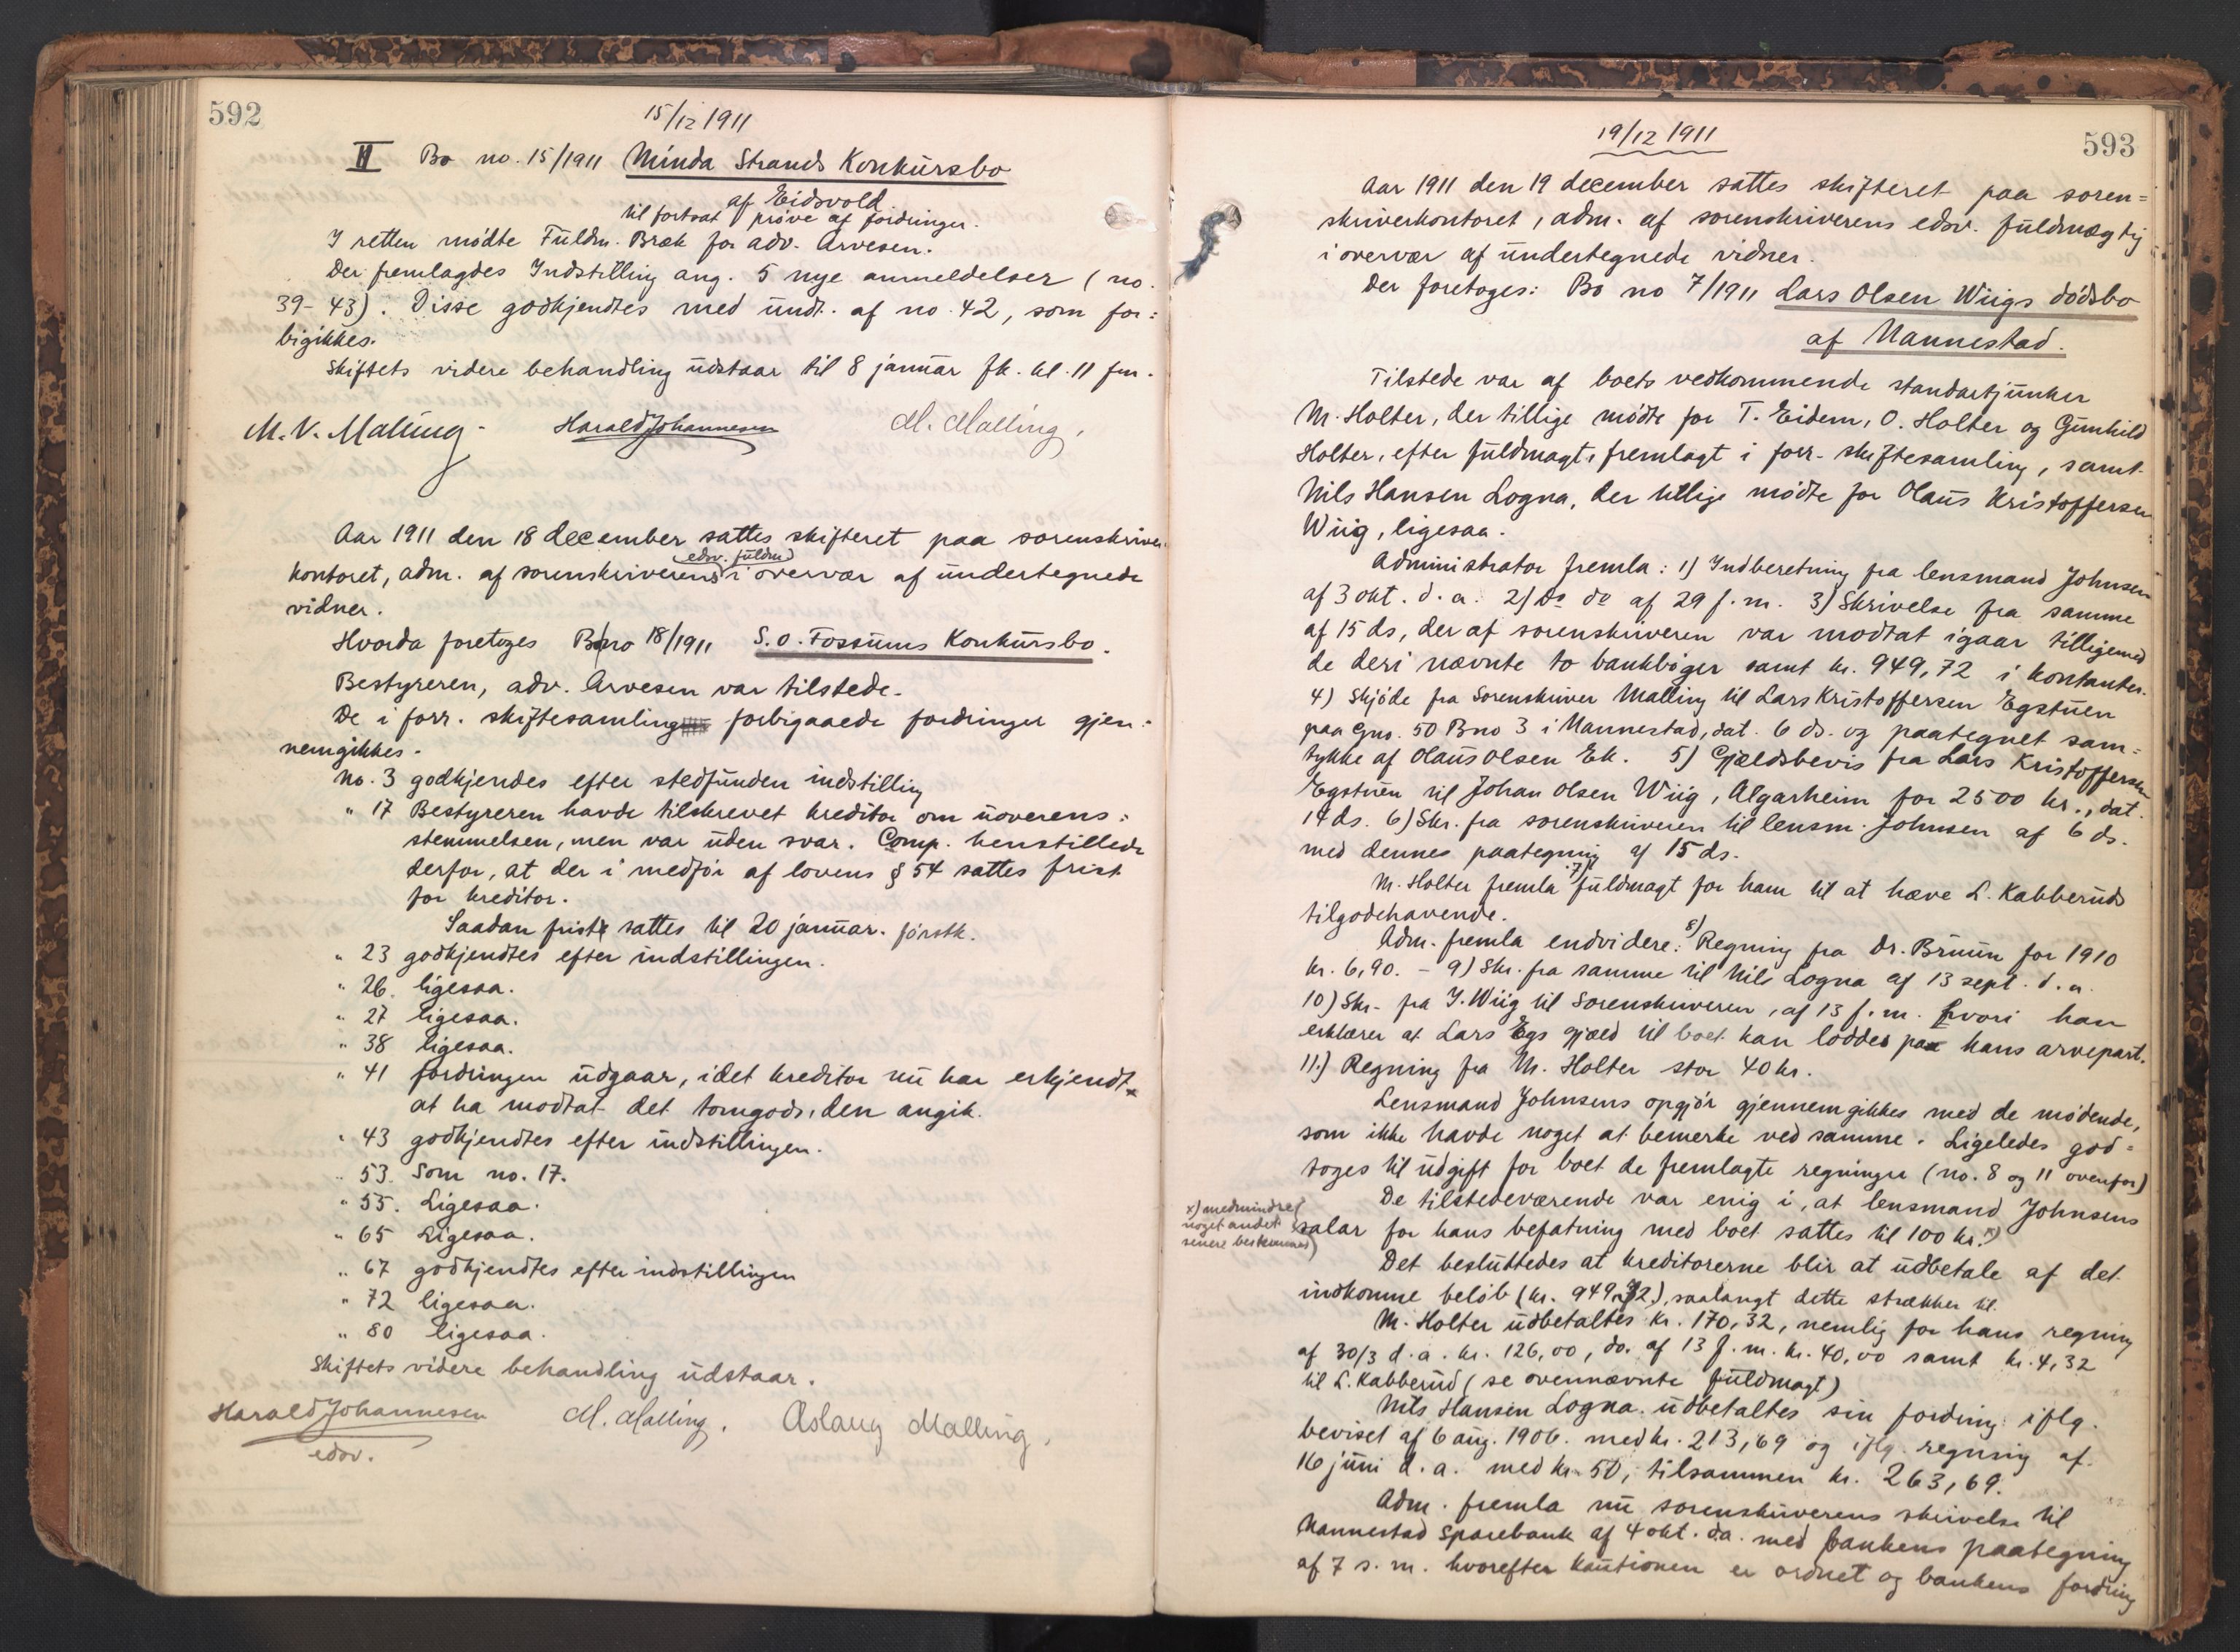 592
15/12 1911
II Bo no. 15/1911 Minda Strands Konkursbo
af Eidsvold
til fortsat prøve af fordringer.
I retten mødte Fuldm. Bræk for adv. Arvesen.
Der fremlagdes Indstilling ang. 5 nye anmeldelser (no.
39-43). Disse godkjendtes med undt. af no. 42, som for=
bigikkes.
Skiftets videre behandling udstaar til 8 januar fk. kl. 11 fm.
M. V. Malling. Harald Johannesen M. Malling.
Aar 1911 den 18 december sattes skifteret paa sorenskriver
kontoret, adm. af sorenskriverens edsv. fuldm i overvær af undertegnede
vidner.
Hvorda foretoges Bo no 18/1911 S. O. Fossums Konkursbo.
Bestyreren, adv. Arvesen var tilstede.
De i forr. skiftesamling forbigaaede fordringer gjen=
nemgikkes.
No. 3 godkjendes efter stedfunden indstilling
" 17 Bestyreren havde tilskrevet kreditor om uoverens=
stemmelsen, men var uden svar. Comp. henstillede
derfor, at der i medfør af lovens § 54 sattes frist
for kreditor.
Saadan frist sattes til 20 januar førstk.
" 23 godkjendtes efter indstillingen.
" 26. ligesaa.
" 27 ligesaa.
" 38 ligesaa.
" 41 fordringen udgaar, idet kreditor nu har erkjendt
at ha modtat det tomgods, den angik.
" 43 godkjendtes efter indstillingen.
" 53. Som no. 17.
" 55. Ligesaa.
" 65 Ligesaa.
" 67 godkjendtes efter indstillingen
" 72 ligesaa.
" 80 ligesaa.
Skiftets videre behandling udstaar.
Harald Johannesen M. Malling. Aslaug Malling.
edsv.
593
19/12 1911
Aar 1911 den 19 december sattes skifteret paa soren=
skriverkontoret, adm. af sorenskriverens edsv. fuldmægtig
i overvær af undertegnede vidner.
Der foretoges: Bo no 7/1911 Lars Olsen Wiigs dødsbo
af Nannestad.
Tilstede var af boets vedkommende standartjunker
M. Holter, der tillige mødte for T. Eidem, O. Holter og Gunhild
Holter, efter fuldmagt, fremlagt i forr. skiftesamling, samt
Nils Hansen Logna, der tillige mødte for Olaus Kristoffersen
Wiig, ligesaa.
Administrator fremla: 1) Indberetning fra lensmand Johnsen
af 3 okt. d. a. 2) Do do af 29 f. m. 3) Skrivelse fra samme
af 15 ds, der af sorenskriveren var modtat igaar tilligemed
de deri nævnte to bankbøger samt kr. 949,72 i kontanter.
4) Skjøde fra Sorenskriver Malling til Lars Kristoffersen Egstuen
paa Gno. 50 Bno 3 i Nannestad, dat. 6 ds. og paategnet sam=
tykke af Olaus Olsen Ek. 5) Gjældsbevis fra Lars Kristoffersen
Egstuen til Johan Olsen Wiig, Algarheim for 2500 kr., dat.
14 ds. 6) Skr. fra sorenskriveren til lensm. Johnsen af 6 ds.
med dennes paategning af 15 ds.
M. Holter fremla 7) fuldmagt for ham til at hæve L. Kabberuds
tilgodehavende.
Adm. fremla endvidere: 8) Regning fra Dr. Bruun for 1910
kr. 6,90. - 9) Skr. fra samme til Nils Logna af 13 sept. d. a.
10) Skr. fra J. Wiig til Sorenskriveren, af 13 f. m. hvori han
erklærer at Lars Egs gjæld til boet kan loddes paa hans arvepart.
11.) Regning fra M. Holter stor 40 kr.
Lensmand Johnsens opgjør gjennemgikkes med de mødende,
som ikke havde noget at bemerke ved samme. Ligeledes god=
toges til udgift for boet de fremlagte regninger (no. 8 og 11 ovenfor)
De tilstedeværende var enig i, at lensmand Johnsens
salar for hans befatning med boet sattes til 100 kr. x)
x) medmindre
noget andet
senere bestemmes)
Det besluttedes at kreditorerne blir at udbetale af det
indkomne beløb (kr. 949,72), saalangt dette strækker til.
M. Holter udbetaltes kr. 170,32, nemlig for hans regning
af 30/3 d. a. kr. 126,00, do. af 13 f. m. kr. 40,00 samt kr. 4,32
til L. Kabberud (se ovennævnte fuldmagt)
Nils Hansen Logna udbetaltes sin fordring iflg.
beviset af 6 aug. 1906. med kr. 213,69 og iflg. regning af
16 juni d. a. med kr. 50, tilsammen kr. 263,69.
Adm. fremla nu sorenskriverens skrivelse til
Nannestad Sparebank af 4 okt. d.a. med bankens paategning
af 7 s. m. hvorefter kautionen er ordnet og bankens fordring